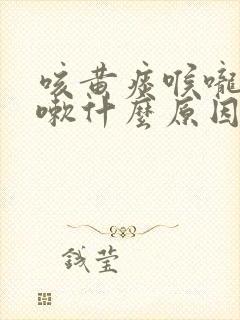 咳黄痰喉嚨
嗽什麼原因
钱莹